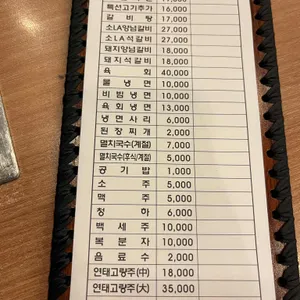 특선고기추가 16,000
갈 비 탕 17,000
소LA양념갈비 27,000
소LA석갈비 27,000
돼지양념갈비 18,000
돼지석갈비 18,000
육 회 40,000
물 냉 면 10,000
비 빔 냉 면 10,000
육 회 냉 면 13,000
냉 면 사 리 6,000
된 장 찌 개 2,000
멸치국수(계절) 7,000
멸치국수(후식/계절) 5,000
공 기 밥 1,000
소 주 5,000
맥 주 5,000
청 하 6,000
백 세 주 10,000
복 분 자 10,000
음 료 수 2,000
연태고량주(中) 18,000
연태고량주(大) 35,000